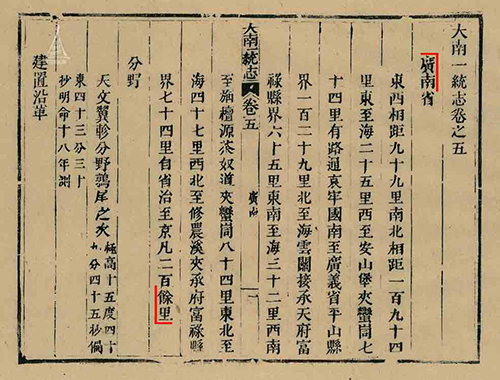 大南一統志卷之五
廣南省
東西相距九十九里南北相距一百九十四
里東至海二十五里西至安山堡夾蠻峝七
十四里有路通哀牢國南至廣義省平山縣
界一百二十九里北至海雲關接承天府富
祿縣界六十五里東南至海三十二里西南
大南一統志 卷五 廣南 一
至旃檀源茶奴道夾蠻峝八十四里東北至
海四十七里西北至修農溪夾承府富祿縣
界七十四里自省治至京凡二百餘里
分野
天文翼軫分野鶉尾之次 極高十五度四十
九分四十五秒偏
東四十三分三十
抄明命十八年測
建置沿革